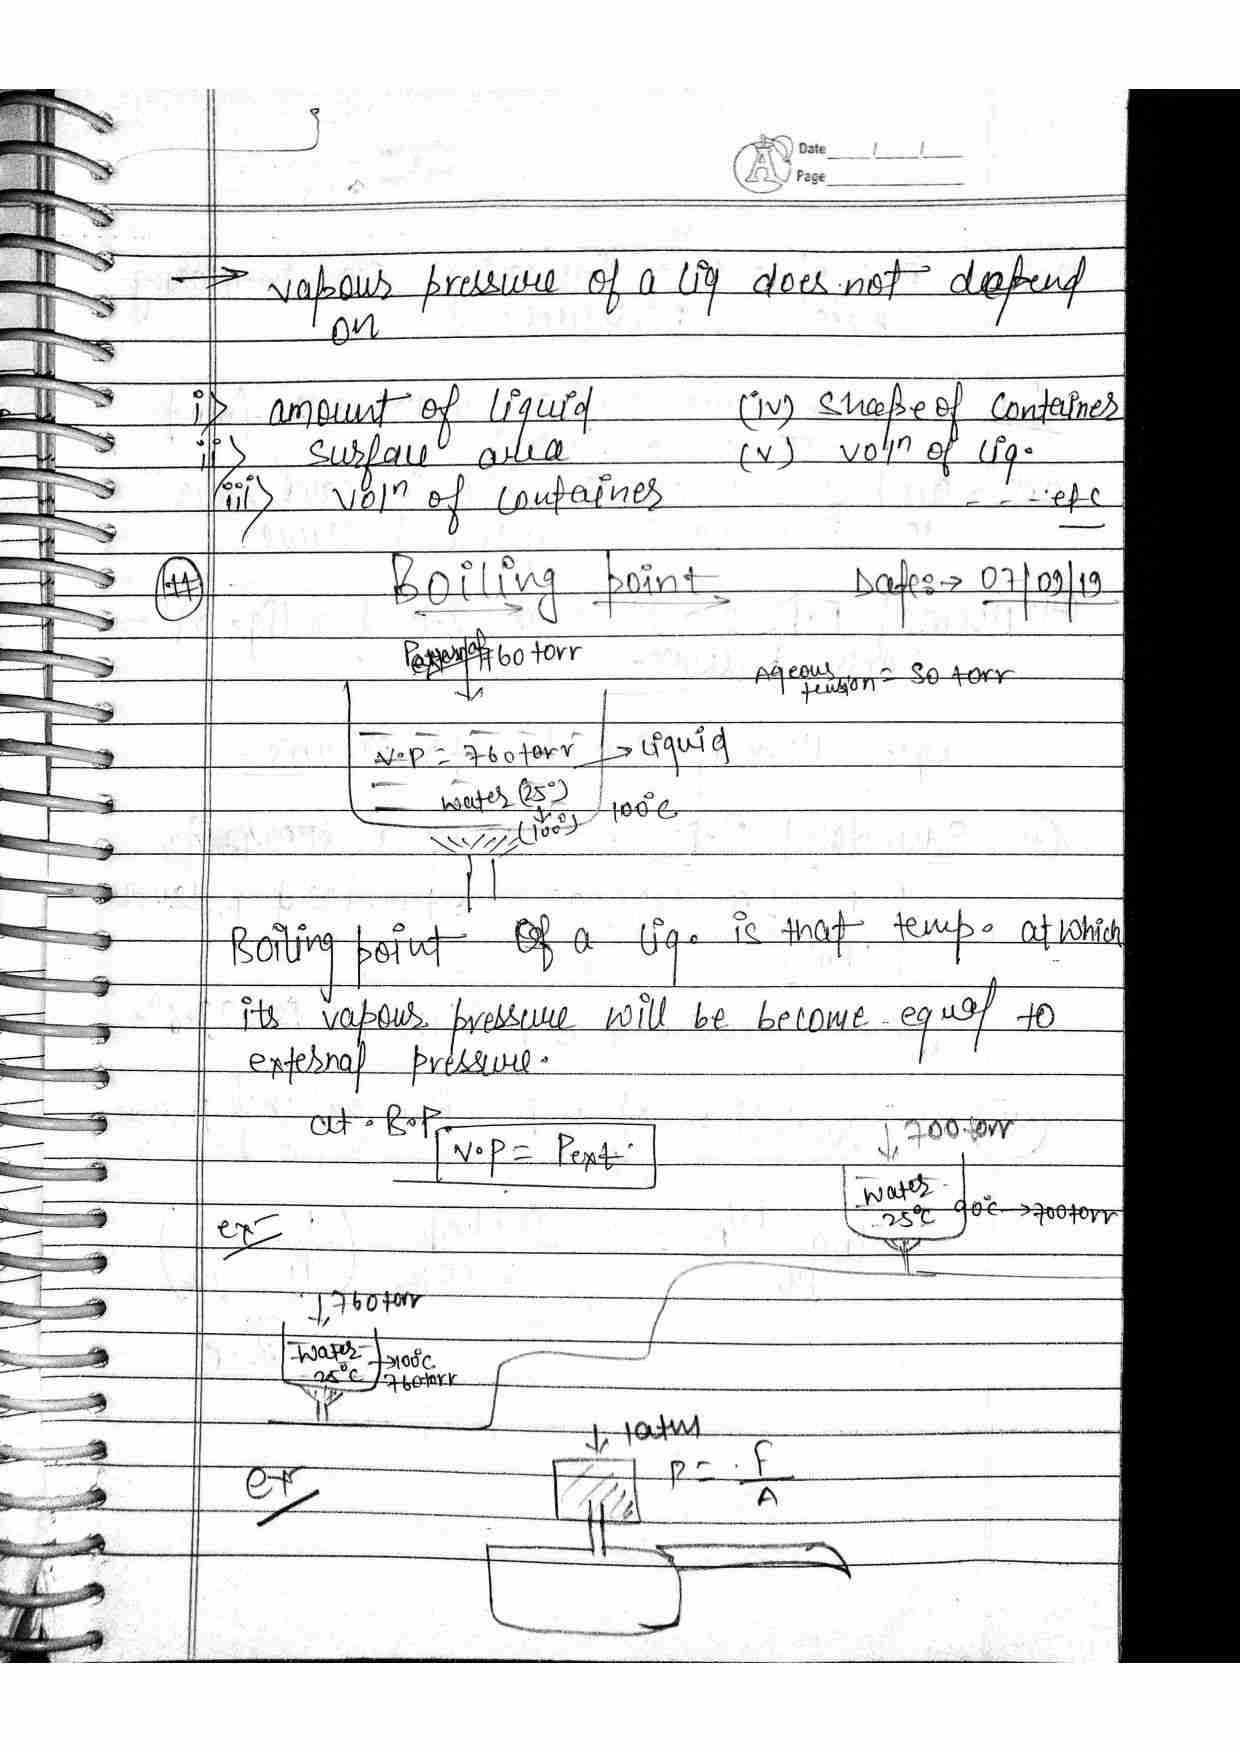 Date
Page
→ vapour pressure of a liq does not depend
on
i> amount of liquid (iv) shape of container
ii> surface area (v) volⁿ of liq.
iii> volⁿ of container - - - etc
Boiling point Date:→ 07/09/19
Pexternal 760 torr
Aqeous tension = 30 torr
V.P = 760 torr → liquid
water (25°)
(100°) 100°C
Boiling point of a liq. is that temp. at which
its vapour pressure will be become equal to
external pressure.
at B.P.
V.P = Pext.
↓ 700 torr
water
25°C 90°C → 700 torr
ex
↓ 760 torr
water → 100°C
25°C 760 torr
↓ 1atm
ex P = F/A